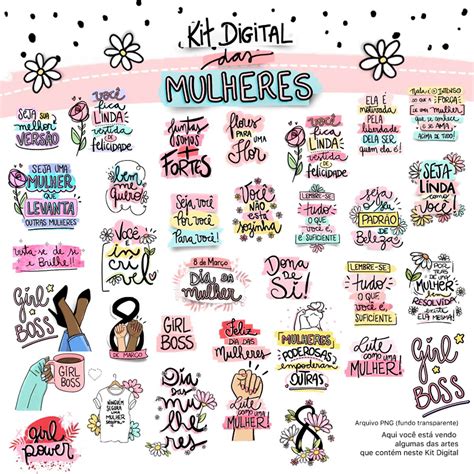 Kit Digital
das
MULHERES
SEJA SUA
MELHOR
VERSÃO
você
fica
LINDA
vestida de
FELICIDADE
Juntas
SOMOS +
FORTES
flores
PARA UMA
flor
você
fica
LINDA
vestida de
FELICIDADE
ELA É
MOTIVADA
PELA
LIBERDADE
DELA SER
QUEM ELA É!
INTENSO
DO QUE A
FORÇA
DE UMA
MULHER
QUE SE CONHECE
E SE AMA
ACIMA DE TUDO!
SEJA UMA
MULHER
QUE
LEVANTA
OUTRAS MULHERES
bem
me
quero!
Seja você
Por você
Para você!
Você
NÃO
ESTÁ
Sozinha
LEMBRE-SE
tudo
O QUE
VOCÊ É,
É SUFICIENTE
seja o
seu
PADRÃO
DE
Beleza
SEJA
LINDA
como
você
vista-se de si
e Brilhe!!
VOCÊ
É
in
crí
vel
8 de Março
Dia da
mulher
Dona
de
Si!
LEMBRE-SE
tudo
O QUE
VOCÊ É,
É SUFICIENTE
POR
TRÁS
DE UMA
MULHER
RESOLVIDA
EXISTE
ELA MESMA!
Girl
BOSS
8
DE MARÇO
GIRL
BOSS
Feliz
DIA DAS
Mulheres
MULHERES
PODEROSAS
empoderam
OUTRAS
Lute
COMO UMA
MULHER!
Girl
BOSS
GIRL
BOSS
NINGUÉM
SEGURA
UMA
MULHER
SEGURA
Dia
das
mu
lhe
res
Lute
COMO UMA
MULHER!
girl
power
Arquivo PNG (fundo transparente)
Aqui você está vendo
algumas das artes
que contém neste Kit Digital